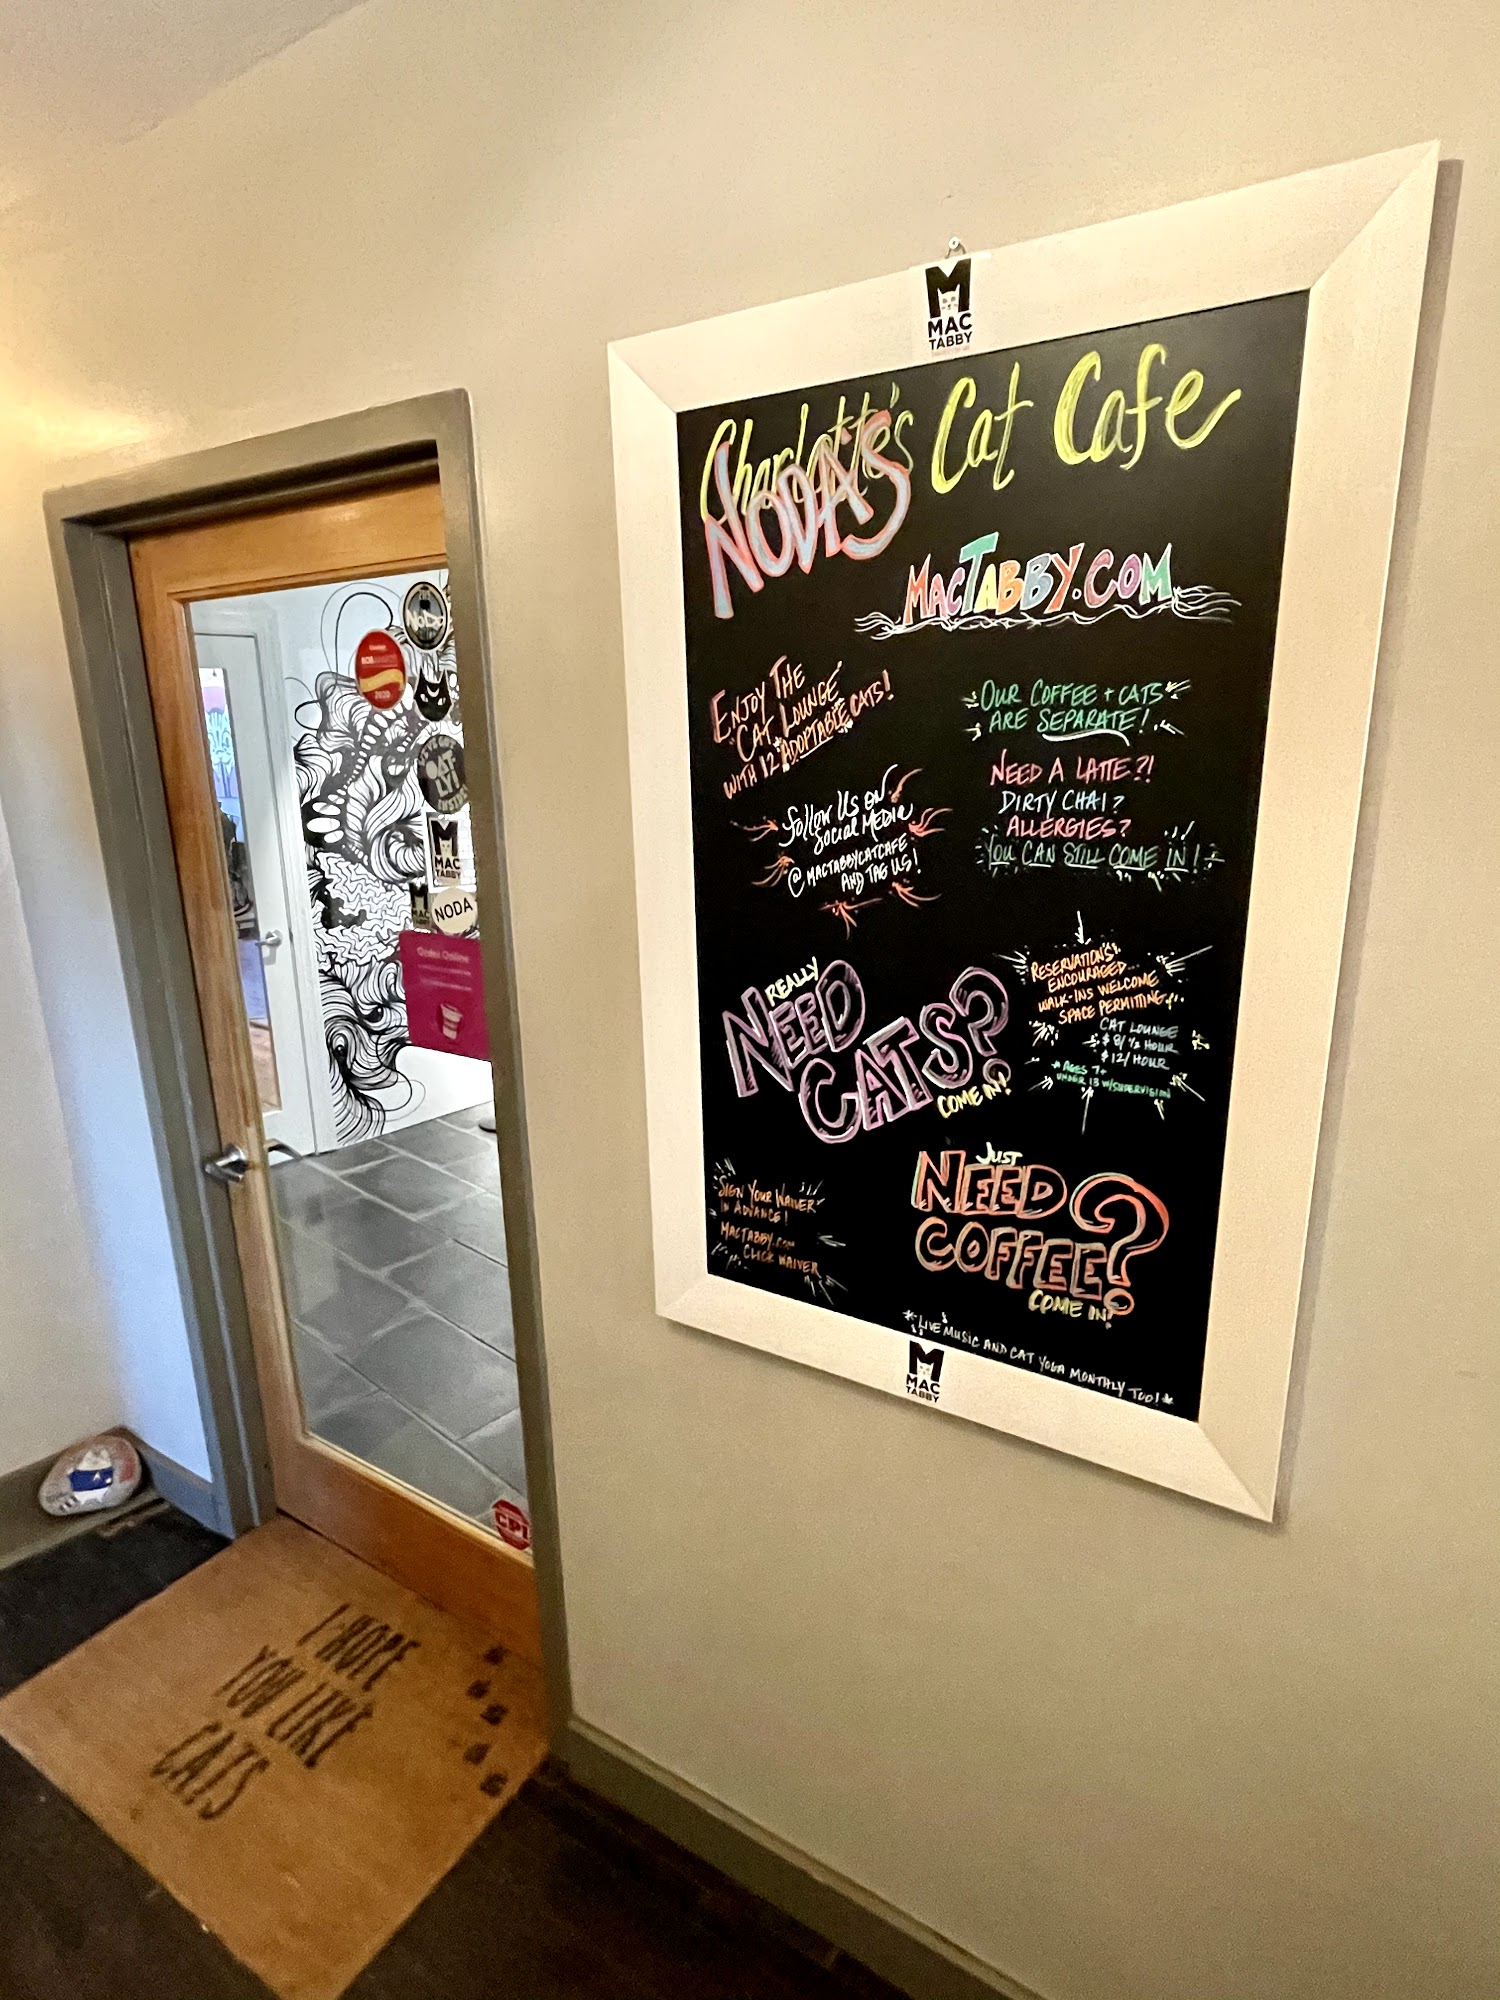 M
MAC
TABBY
Charlotte's Cat Cafe
NODA'S
MACTABBY.COM
ENJOY THE
CAT LOUNGE
WITH 12 ADOPTABLE CATS!
OUR COFFEE + CATS
ARE SEPARATE!
NEED A LATTE?!
DIRTY CHAI?
ALLERGIES?
YOU CAN STILL COME IN!
Follow Us on
Social Media
@MACTABBYCATCAFE
AND TAG US!
REALLY
NEED
CATS?
COME IN!
RESERVATIONS
ENCOURAGED...
WALK-INS WELCOME
SPACE PERMITTING
CAT LOUNGE
$8/ ½ HOUR
$12/ HOUR
* AGES 7+
UNDER 13 W/SUPERVISION
SIGN YOUR WAIVER
IN ADVANCE!
MACTABBY.COM
CLICK WAIVER
JUST
NEED
COFFEE?
COME IN!
*LIVE MUSIC AND CAT YOGA MONTHLY TOO!*
M
MAC
TABBY
NoDa
2020
OAT
LY!
INSIDE
M
MAC
TABBY
MAC
NODA
Order Online
CPI
I HOPE
YOU LIKE
CATS